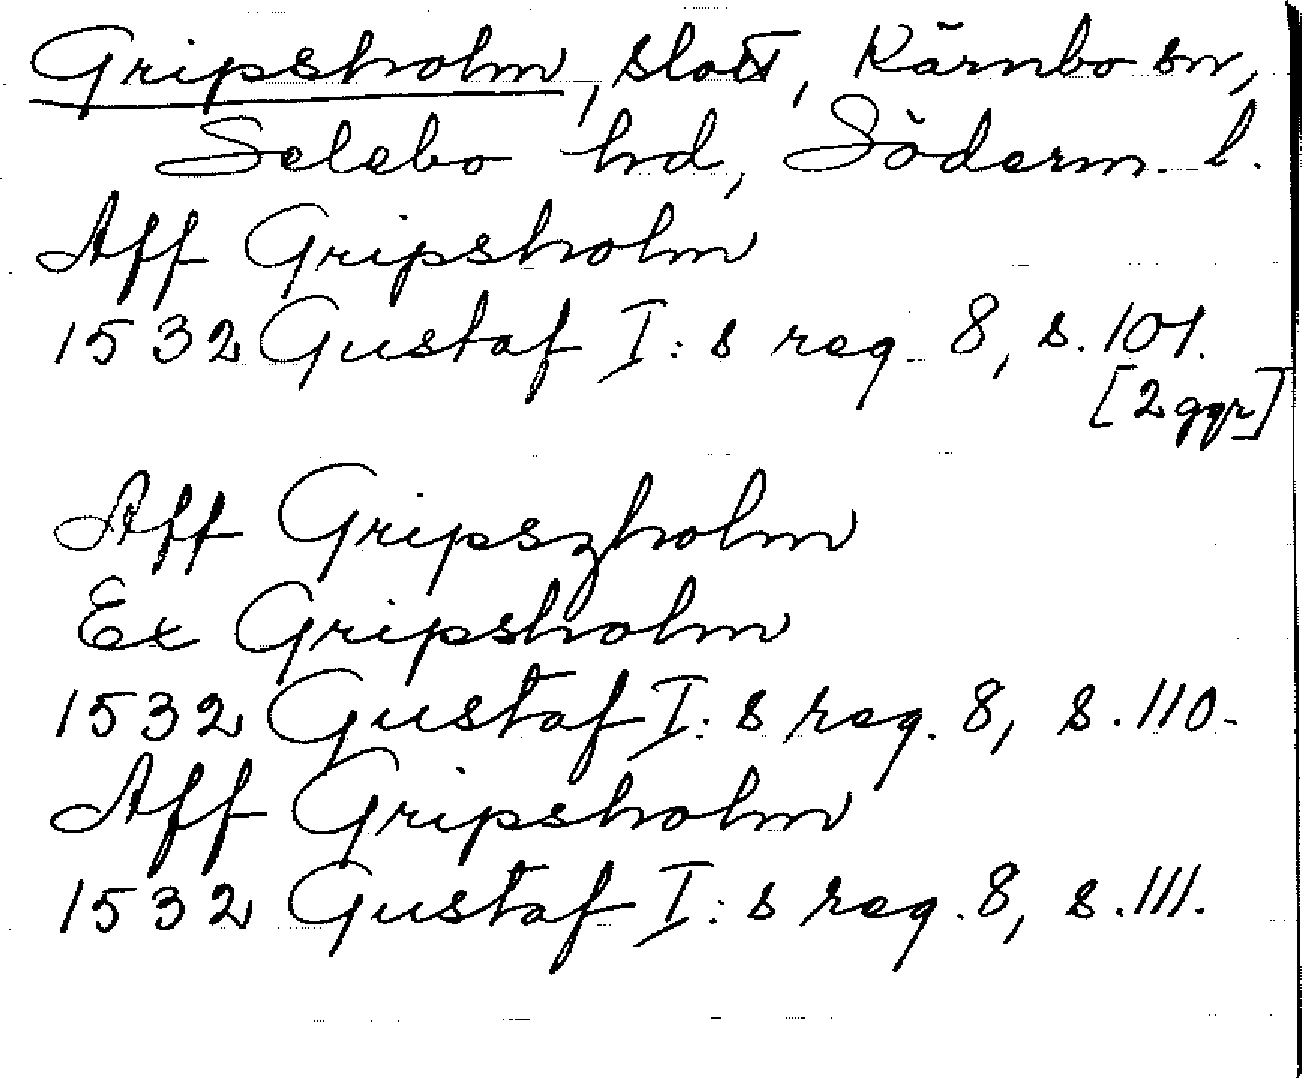 Gripsholm, slott, Kärnbo sn,
Selebo hd, Söderm. l.
Aff Gripsholm
1532 Gustaf I:s reg. 8, s. 101.
[2 ggr]
Aff Gripszholm
Ex Gripsholm
1532 Gustaf I:s reg. 8, s. 110.
Aff Gripsholm
1532 Gustaf I:s reg. 8, s. 111.